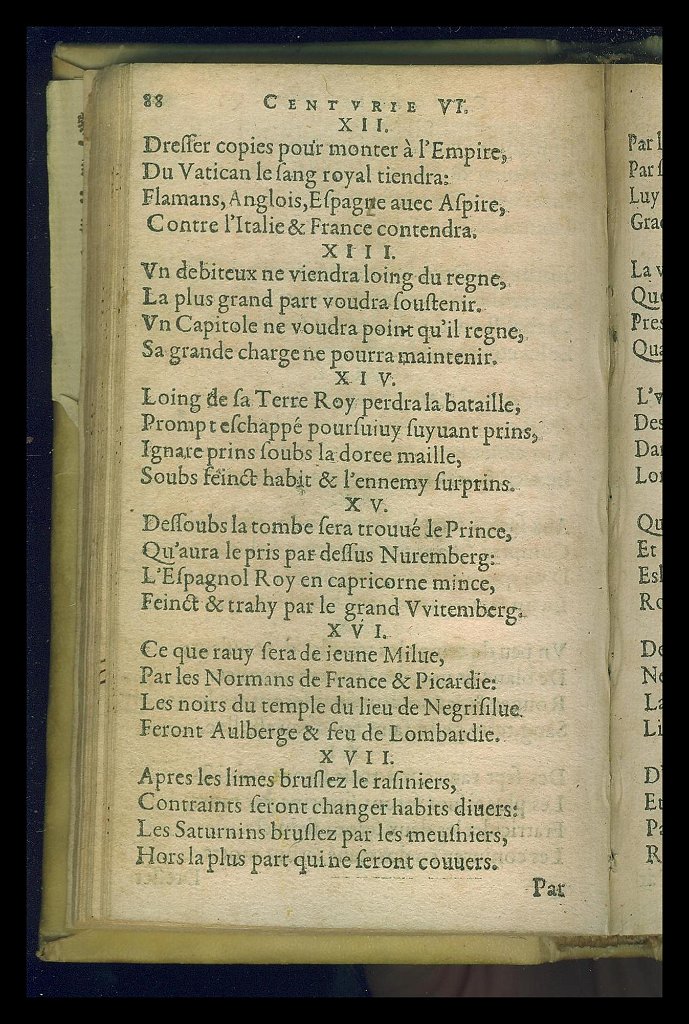 88 CENTVRIE VI.
XII.
Dreſſer copies pour monter à l'Empire,
Du Vatican le ſang royal tiendra:
Flamans, Anglois, Eſpagne auec Aſpire,
Contre l'Italie & France contendra.
XIII.
Vn debiteux ne viendra loing du regne,
La plus grand part voudra ſouſtenir.
Vn Capitole ne voudra point qu'il regne,
Sa grande charge ne pourra maintenir.
XIV.
Loing de ſa Terre Roy perdra la bataille,
Prompt eſchappé pourſuiuy ſuyuant prins,
Ignare prins ſoubs la doree maille,
Soubs feinct habit & l'ennemy ſurprins.
XV.
Deſſoubs la tombe ſera trouué le Prince,
Qu'aura le pris par deſſus Nuremberg:
L'Eſpagnol Roy en capricorne mince,
Feinct & trahy par le grand Vvitemberg.
XVI.
Ce que rauy ſera de ieune Milue,
Par les Normans de France & Picardie:
Les noirs du temple du lieu de Negriſilue
Feront Aulberge & feu de Lombardie.
XVII.
Apres les limes bruſlez le raſiniers,
Contraints ſeront changer habits diuers:
Les Saturnins bruſlez par les meuſniers,
Hors la plus part qui ne ſeront couuers.
Par
Par
Luy
La
Que
Pres
Qua
L'v
Des
Et